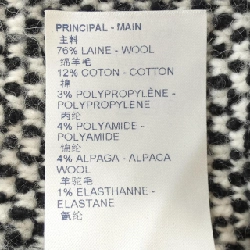 PRINCIPAL - MAIN
主料
76% LAINE - WOOL
绵羊毛
12% COTON - COTTON
棉
3% POLYPROPYLÈNE -
POLYPROPYLENE
丙纶
4% POLYAMIDE -
POLYAMIDE
锦纶
4% ALPAGA - ALPACA
WOOL
羊驼毛
1% ELASTHANNE -
ELASTANE
氨纶